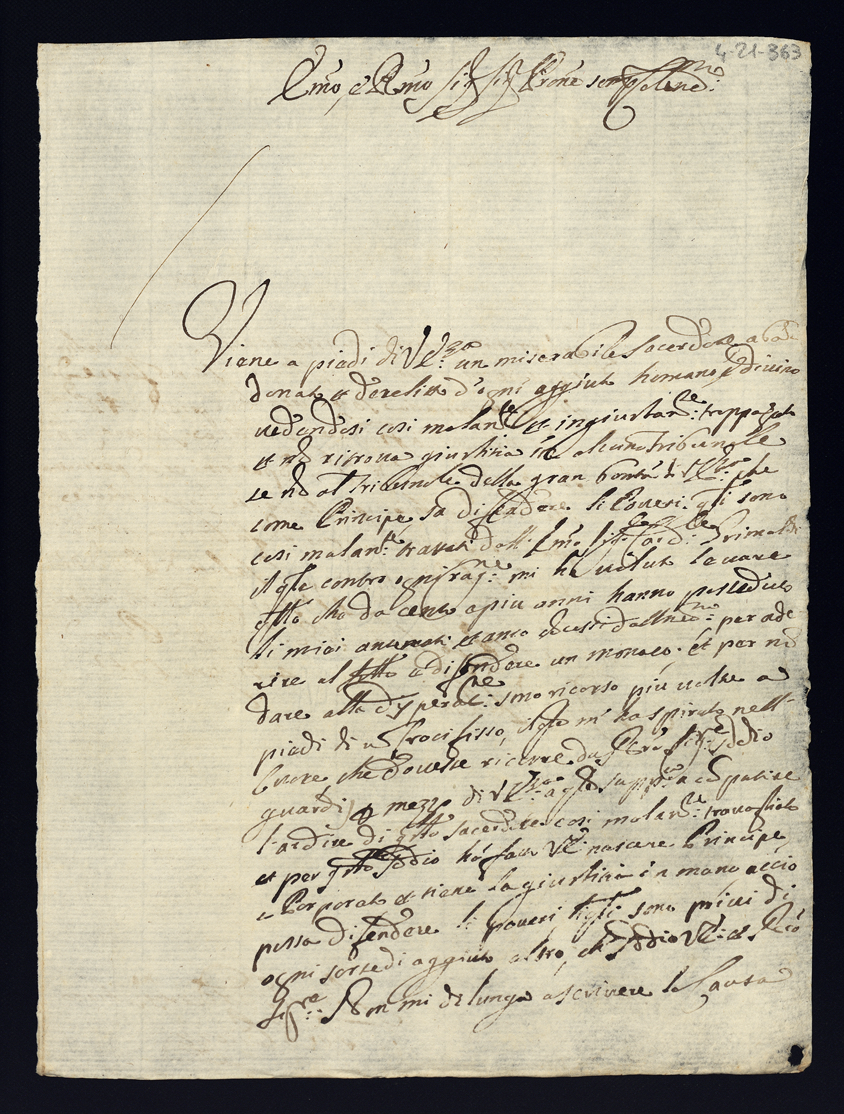 4-21-363
Emo, e Rmo Sig. Sig. Prone semp Colenmo:
Viene a piedi di VEza: un miserabile Sacerdote aban
donato et derelitto d'ogni aggiuto humano, e divino
vedendosi cosi malamte et ingiustamte: trappazzato
et nō ritrova giustitia in alcuno tribunale
se nō al Tribunale della gran bontà di VEza: che
come Principe sa difendere li Poveri. qli sono
cosi malamte: trattati dall. Emo Sig. Card: Grimaldi
il qle contro ogni ragne: mi ha voluto levare
qllo che da cento e più anni hanno posseduto
li miei antenati et anco
rire al fatto e difendere un monaco. et per nō
dare alla dysperatne: sono ricorso più volte a
piedi di ū Crocifisso, il qle m'ha spirato nell
cuore che dovesse ricorre da
guardi) mezzo di VEza a qle suppco a cōpatire
l'ardire di qsto sacerdote cosi malamte: travagliato
et per qsto Iddio hà fatto VE: nascere Principe,
e Porporato et tiene la giustitia in mano acciò
possa difendere li poveri sono privi di
ogni sorte di aggiuto altro, ch' Iddio VE: et Però
Sigre: Non mi dilungo a scrivere la Causa